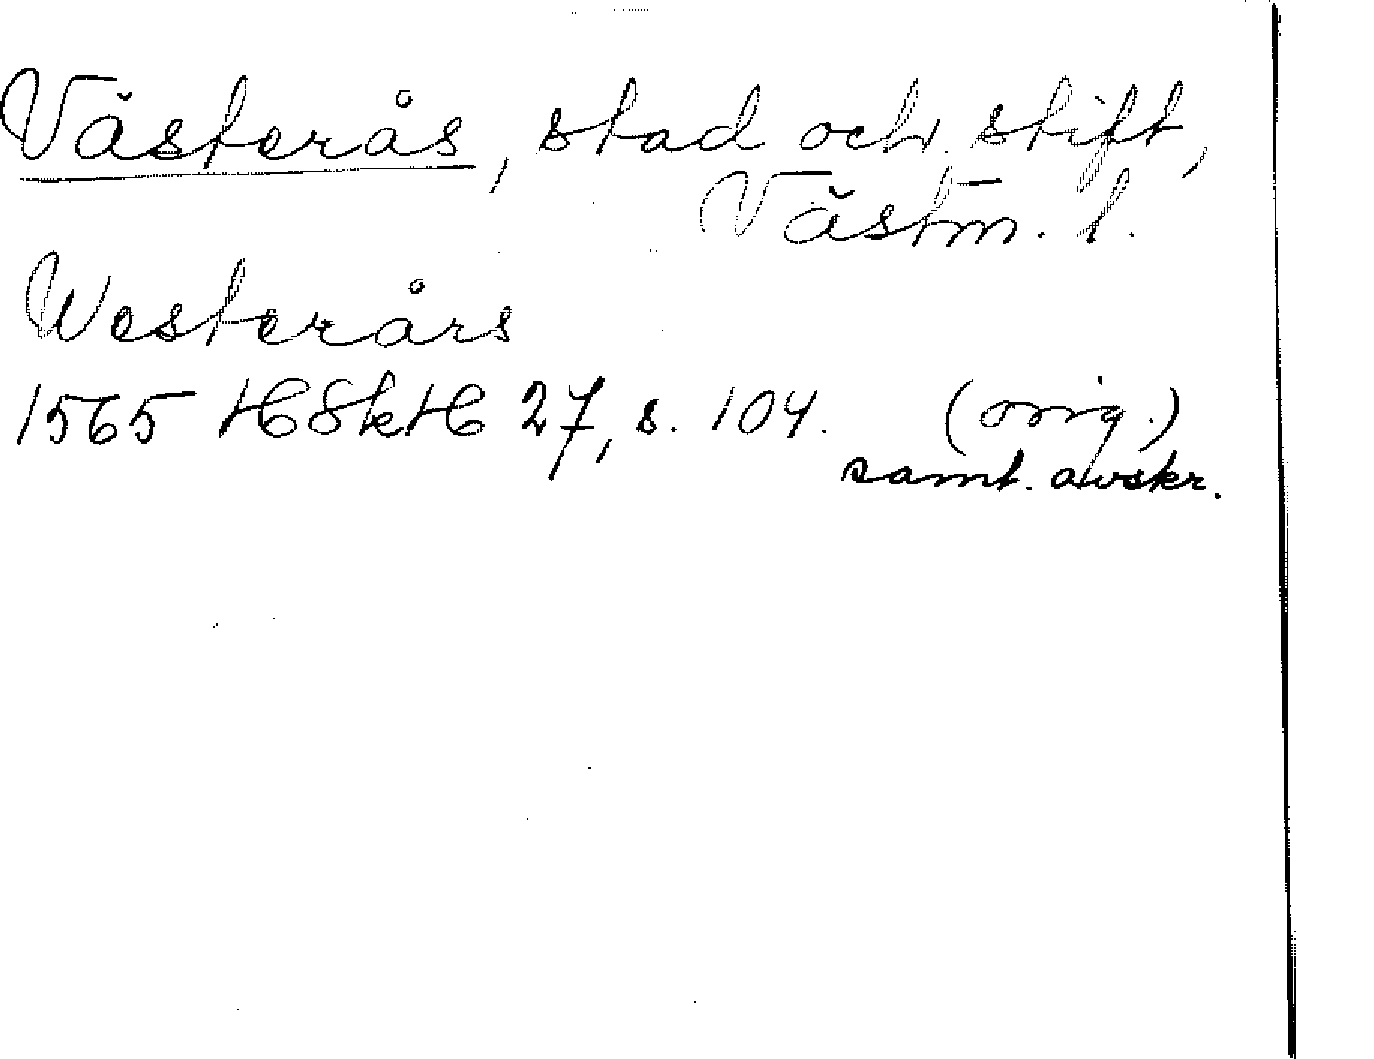 Västerås, stad och stift,
Västm. l.
Westerårs
1565 HSkH 27, s. 104. (orig.)
samt. avskr.